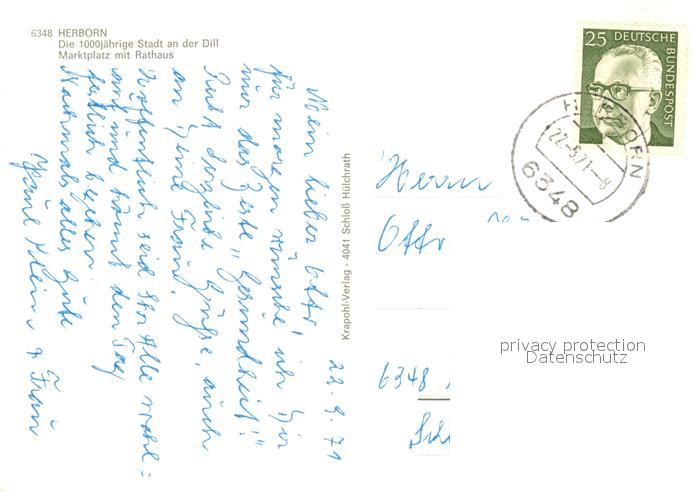 6348 HERBORN
Die 1000jährige Stadt an der Dill
Marktplatz mit Rathaus
22.9.71
Mein lieber Otto!
für morgen wünsche ich Dir
nur das Beste, "Gesundheit!"
Rust herzliche Grüße, auch
an Deine Frau!
Hoffentlich seid Ihr Alle wohl=
auf und könnt den Tag
festlich begehen.
Nochmals alles Gute
Frau
Krapohl-Verlag · 4041 Schloß Hülchrath
25 DEUTSCHE BUNDESPOST
HERBORN
22.-9.71-8
6348
Herrn
Otto
6348
privacy protection
Datenschutz